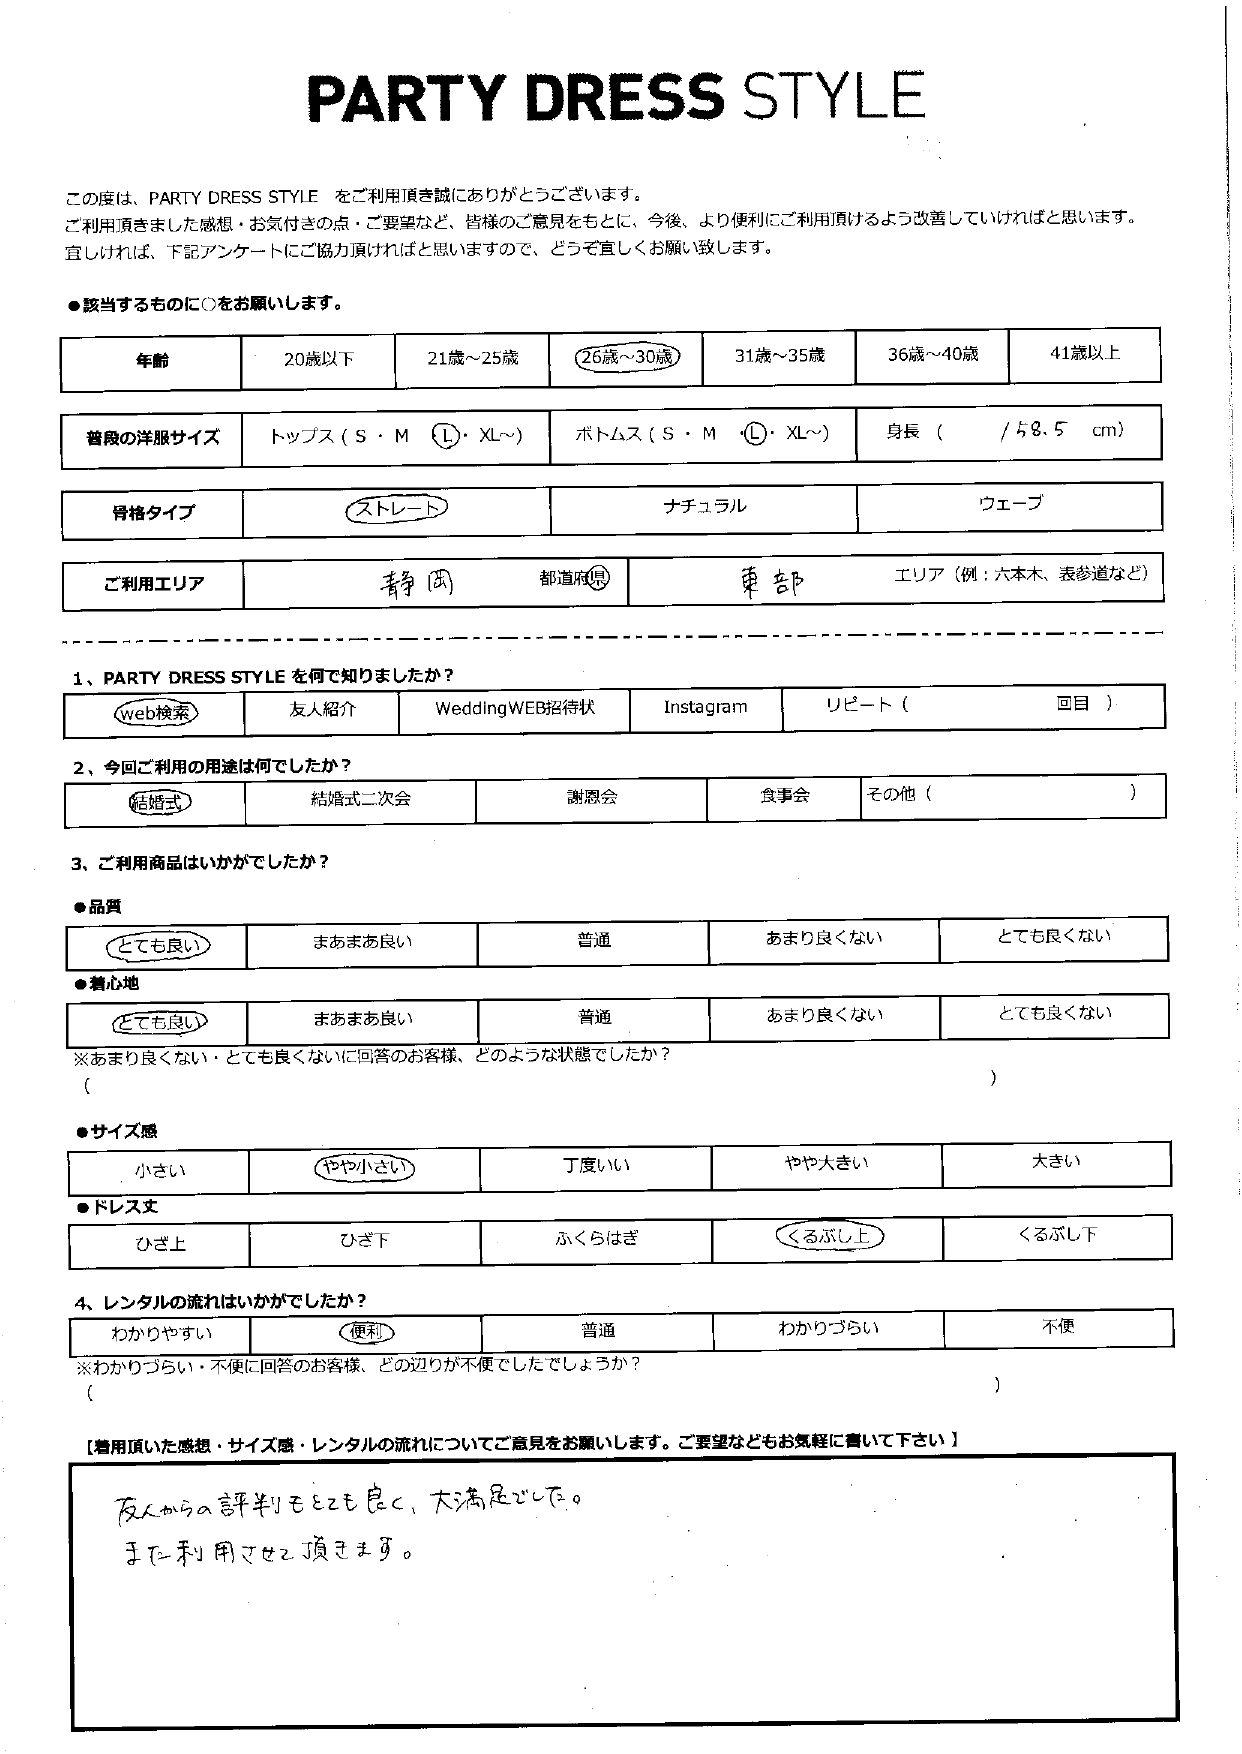 PARTY DRESS STYLE
この度は、PARTY DRESS STYLE をご利用頂き誠にありがとうございます。
ご利用頂きました感想・お気付きの点・ご要望など、皆様のご意見をもとに、今後、より便利にご利用頂けるよう改善していければと思います。
宜しければ、下記アンケートにご協力頂ければと思いますので、どうぞ宜しくお願い致します。
●該当するものに○をお願いします。
年齢 20歳以下 21歳～25歳 26歳～30歳 31歳～35歳 36歳～40歳 41歳以上
普段の洋服サイズ トップス ( S ・ M ・ L ・ XL～) ボトムス ( S ・ M ・ L ・ XL～) 身長 ( 158.5 cm)
骨格タイプ ストレート ナチュラル ウェーブ
ご利用エリア 静岡 都道府県 東部 エリア（例：六本木、表参道など）
1、PARTY DRESS STYLE を何で知りましたか？
web検索 友人紹介 WeddingWEB招待状 Instagram リピート ( 回目 )
2、今回ご利用の用途は何でしたか？
結婚式 結婚式二次会 謝恩会 食事会 その他 ( )
3、ご利用商品はいかがでしたか？
●品質
とても良い まあまあ良い 普通 あまり良くない とても良くない
●着心地
とても良い まあまあ良い 普通 あまり良くない とても良くない
※あまり良くない・とても良くないに回答のお客様、どのような状態でしたか？
( )
●サイズ感
小さい やや小さい 丁度いい やや大きい 大きい
●ドレス丈
ひざ上 ひざ下 ふくらはぎ くるぶし上 くるぶし下
4、レンタルの流れはいかがでしたか？
わかりやすい 便利 普通 わかりづらい 不便
※わかりづらい・不便に回答のお客様、どの辺りが不便でしたでしょうか？
( )
【着用頂いた感想・サイズ感・レンタルの流れについてご意見をお願いします。ご要望などもお気軽に書いて下さい 】
友人からの評判もとても良く、大満足でした。
また利用させて頂きます。